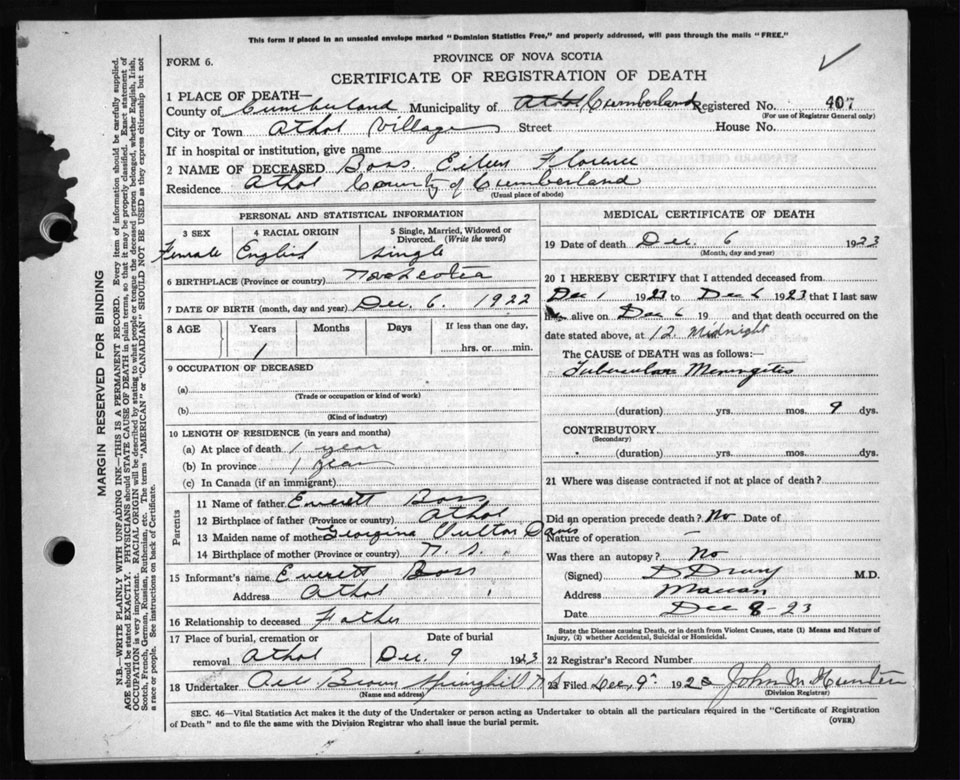 This form if placed in an unsealed envelope marked "Dominion Statistics Free," and properly addressed, will pass through the mails "FREE."
FORM 6.
PROVINCE OF NOVA SCOTIA
CERTIFICATE OF REGISTRATION OF DEATH
1 PLACE OF DEATH—
County of Cumberland Municipality of Athol Cumberland Registered No. 407
(For use of Registrar General only)
City or Town Athol Village Street House No.
If in hospital or institution, give name
2 NAME OF DECEASED Boss Eileen Florence
Residence Athol County of Cumberland
(Usual place of abode)
PERSONAL AND STATISTICAL INFORMATION
3 SEX 4 RACIAL ORIGIN 5 Single, Married, Widowed or Divorced. (Write the word)
Female English Single
6 BIRTHPLACE (Province or country) Nova Scotia
7 DATE OF BIRTH (month, day and year) Dec. 6. 1922
8 AGE Years Months Days If less than one day,
1 hrs. or min.
9 OCCUPATION OF DECEASED
(a)
(Trade or occupation or kind of work)
(b)
(Kind of industry)
10 LENGTH OF RESIDENCE (in years and months)
(a) At place of death 1 year
(b) In province 1 year
(c) In Canada (if an immigrant)
Parents
11 Name of father Everett Boss
12 Birthplace of father (Province or country) Athol
13 Maiden name of mother Georgina Davis
14 Birthplace of mother (Province or country) N. S. "
15 Informant's name Everett Boss
Address Athol
16 Relationship to deceased Father
17 Place of burial, cremation or removal Athol Date of burial Dec. 9 1923
18 Undertaker Brown Springhill N S
(Name and address)
MEDICAL CERTIFICATE OF DEATH
19 Date of death Dec. 6 1923
(Month, day and year)
20 I HEREBY CERTIFY that I attended deceased from
Dec 1 1923 to Dec 6 1923 that I last saw
alive on Dec 6 19 and that death occurred on the
date stated above, at 12 Midnight
The CAUSE OF DEATH was as follows:—
Tubercular Meningitis
(duration) yrs. mos. 9 dys.
CONTRIBUTORY
(Secondary)
(duration) yrs. mos. dys.
21 Where was disease contracted if not at place of death?
Did an operation precede death? No Date of
Nature of operation —
Was there an autopsy? No
(Signed) D Drury M.D.
Address Maccan
Date Dec 8-23
State the Disease causing Death, or in death from Violent Causes, state (1) Means and Nature of
Injury, (2) whether Accidental, Suicidal or Homicidal.
22 Registrar's Record Number
23 Filed Dec. 9 1923 John M Hunter
(Division Registrar)
SEC. 46—Vital Statistics Act makes it the duty of the Undertaker or person acting as Undertaker to obtain all the particulars required in the "Certificate of Registration
of Death" and to file the same with the Division Registrar who shall issue the burial permit.
(OVER)
MARGIN RESERVED FOR BINDING
N.B.—WRITE PLAINLY WITH UNFADING INK—THIS IS A PERMANENT RECORD. Every item of information should be carefully supplied.
AGE should be stated EXACTLY. PHYSICIANS should STATE CAUSE OF DEATH in plain terms, so that it may be properly classified. Exact statement of
OCCUPATION is very important. RACIAL ORIGIN will be described by stating to what people or tongue the deceased person belonged, whether English, Irish,
Scotch, French, German, Russian, Ruthenian, etc. The terms "AMERICAN" or "CANADIAN" SHOULD NOT BE USED as they express citizenship but not
a race or people. See instructions on back of Certificate.